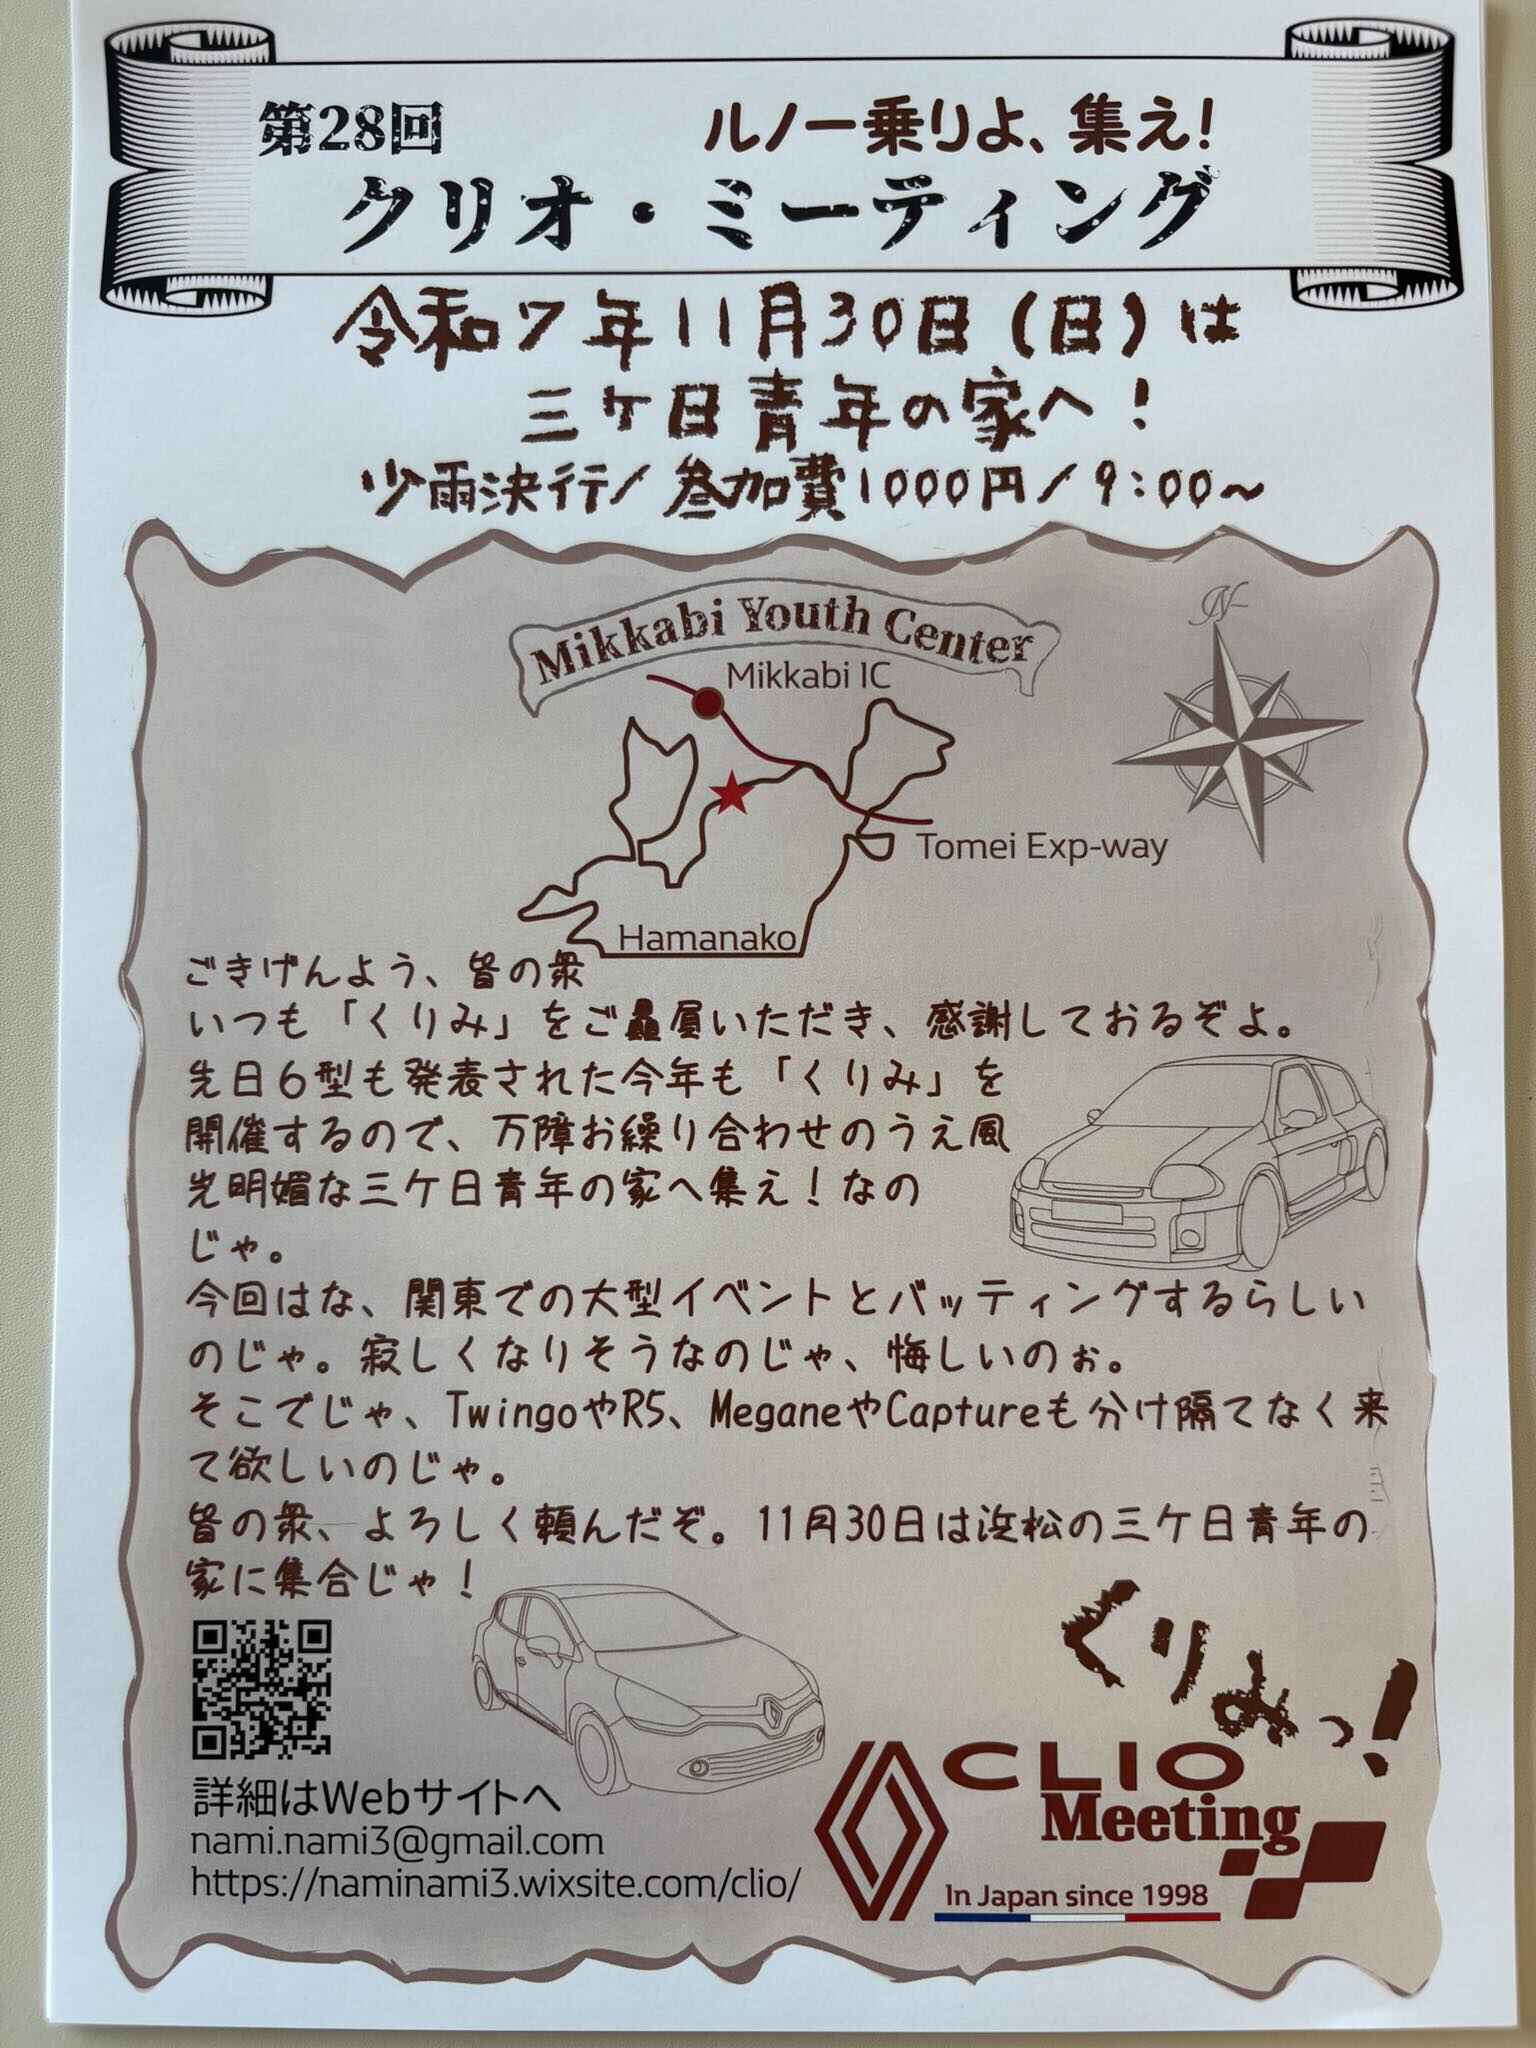 第28回
ルノー乗りよ、集え！
クリオ・ミーティング
令和7年11月30日（日）は
三ケ日青年の家へ！
少雨決行/参加費1000円/9:00～
N
Mikkabi Youth Center
Mikkabi IC
Tomei Exp-way
Hamanako
ごきげんよう、皆の衆
いつも「くりみ」をご贔屓いただき、感謝しておるぞよ。
先日6型も発表された今年も「くりみ」を
開催するので、万障お繰り合わせのうえ風
光明媚な三ケ日青年の家へ集え！なの
じゃ。
今回はな、関東での大型イベントとバッティングするらしい
のじゃ。寂しくなりそうなのじゃ、悔しいのぉ。
そこでじゃ、TwingoやR5、MeganeやCaptureも分け隔てなく来
て欲しいのじゃ。
皆の衆、よろしく頼んだぞ。11月30日は浜松の三ケ日青年の
家に集合じゃ！
くりみっ！
詳細はWebサイトへ
nami.nami3@gmail.com
https://naminami3.wixsite.com/clio/
CLIO
Meeting
In Japan since 1998